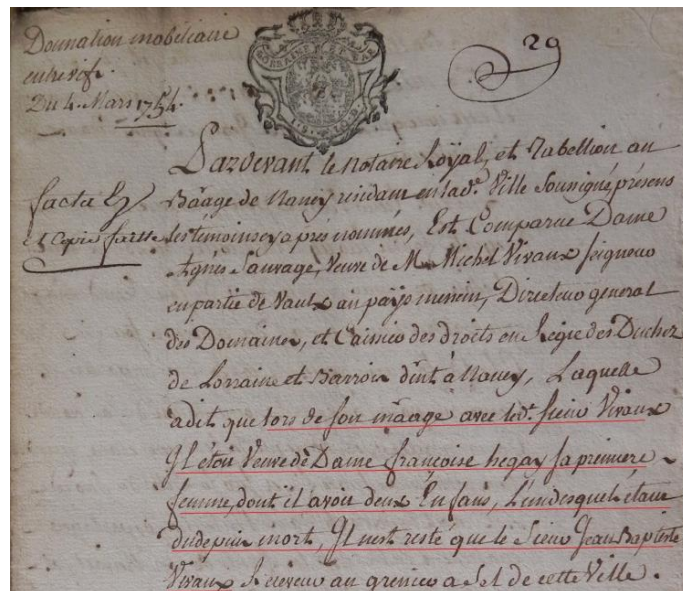 Donnation mobiliaire
entre vifs.
Du 4. Mars 1754.
29
LORRAINE ET BAR
Pardevant le notaire Royal, et Tabellion au
Bâage de Nancy résidant en lad.e Ville Sousigné présens
les témoins cy après nommés, Est Comparue Dame
Agnès Sauvage, Veuve de M. Michel Vivaux seigneur
en partie de Vaux au pays messin, Directeur general
des Domaines, et Caissier des droits en Regie des Duchez
de Lorraine et Barrois dmt à Nancy, Laquelle
a dit que lors de son mâage avec led. sieur Vivaux
Il étoit Veuf de Dame françoise hegay sa premiere
femme, dont il avoit deux Enfans, L'un desquels étant
du depuis mort, Il n'est resté que le Sieur Jean Baptiste
Vivaux Receveur au grenier a Sel de cette Ville.
facta
et Copie faitte